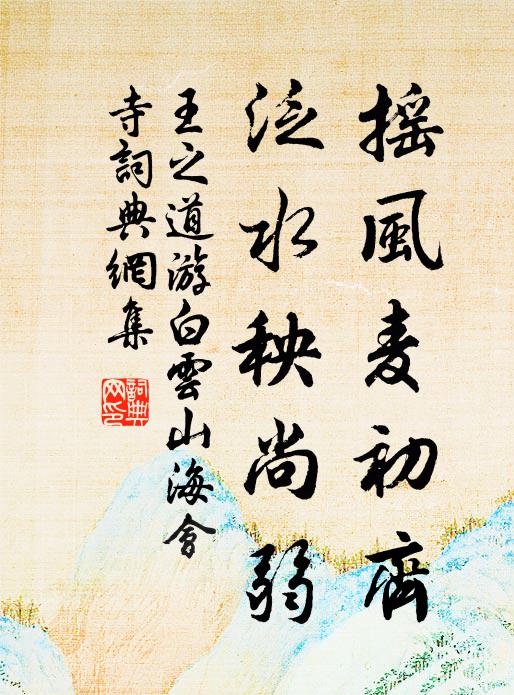 搖風麦初齊
泛水秧尚弱
王之道游白雲山海會
寺詞典網集
詞典
网印